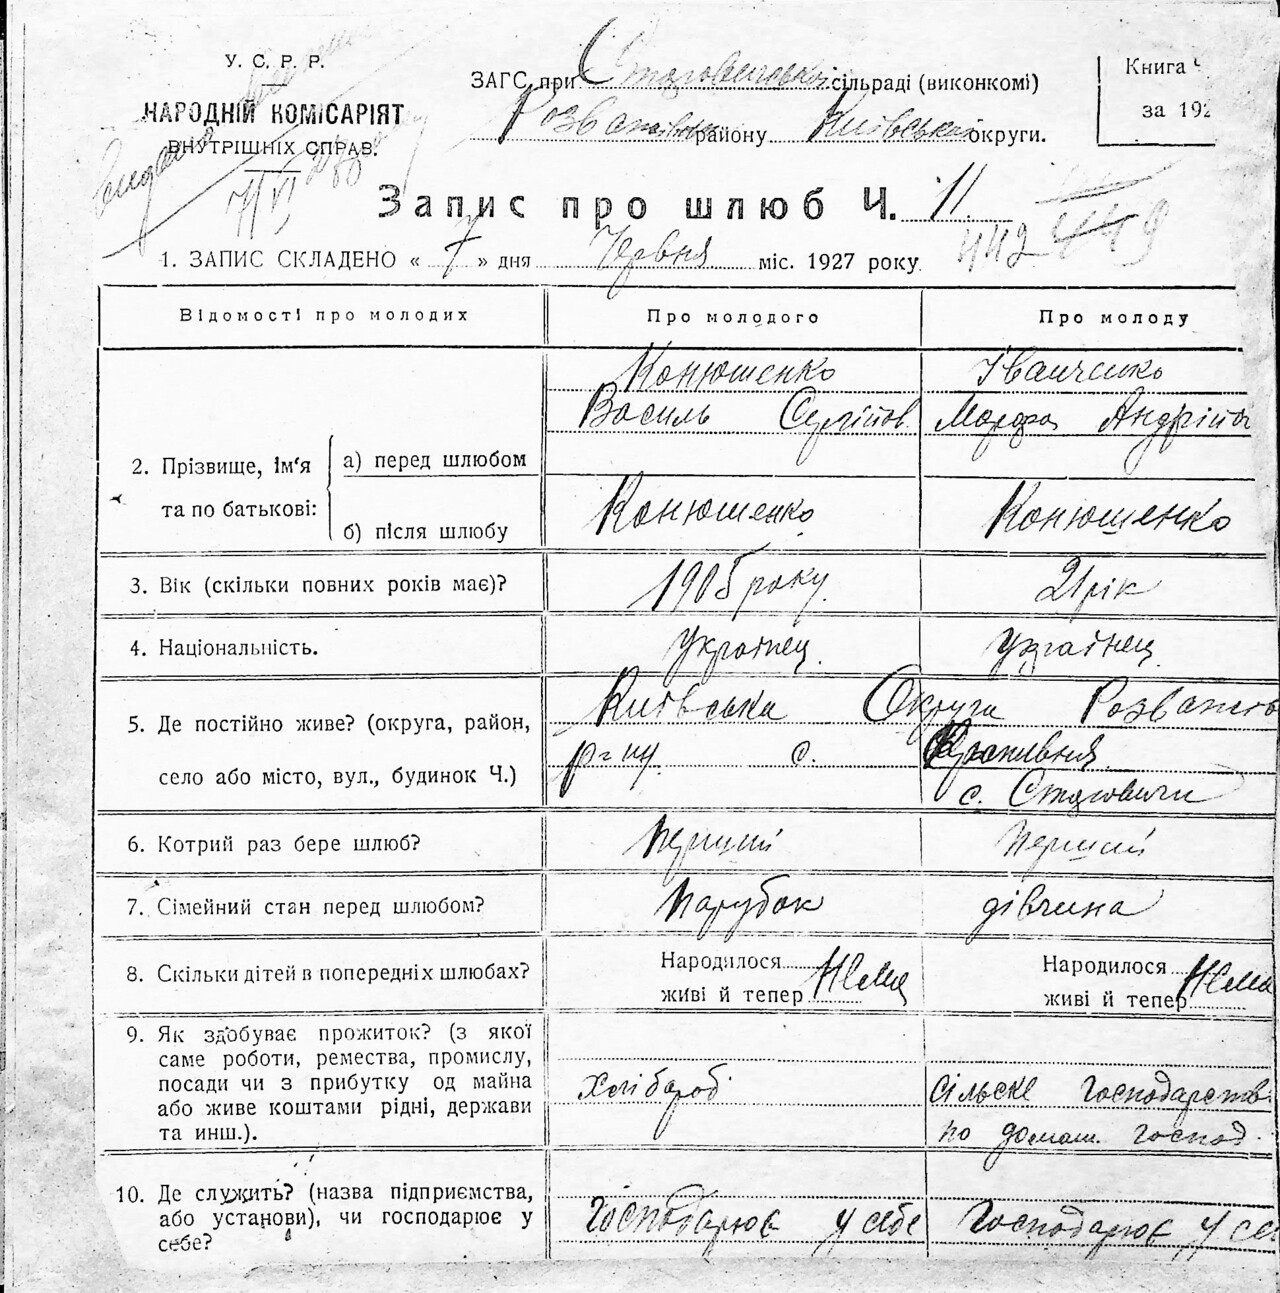 У. С. Р. Р.
НАРОДНІЙ КОМІСАРІЯТ
ВНУТРІШНІХ СПРАВ.
ЗАГС при Старовицькій сільраді (виконкомі)
району Київської округи.
Книга Ч
за 192
7/VI
Запис про шлюб Ч. 11
442 449
1. ЗАПИС СКЛАДЕНО « 7 » дня Червня міс. 1927 року
Відомості про молодих Про молодого Про молоду
Конюшенко Іванченко
Василь Сергійов. Марфа Андрійов
2. Прізвище, ім'я та по батькові:
а) перед шлюбом
б) після шлюбу Конюшенко Конюшенко
3. Вік (скільки повних років має)? 1905 року. 21 рік
4. Національність. Українец. Українец
5. Де постійно живе? (округа, район,
село або місто, вул., будинок Ч.)
Київська Округа Розважів
р-ну. с.
с. Старовичи
6. Котрий раз бере шлюб? Перший Перший
7. Сімейний стан перед шлюбом? Парубок дівчина
8. Скільки дітей в попередніх шлюбах?
Народилося
живі й тепер Нема
Народилося
живі й тепер Нема
9. Як здобуває прожиток? (з якої
саме роботи, ремества, промислу,
посади чи з прибутку од майна
або живе коштами рідні, держави
та инш.).
хлібороб
сільске господарств.
по домаш. господ.
10. Де служить? (назва підприємства,
або установи), чи господарює у
себе?
Господарює у себе Господарює у се